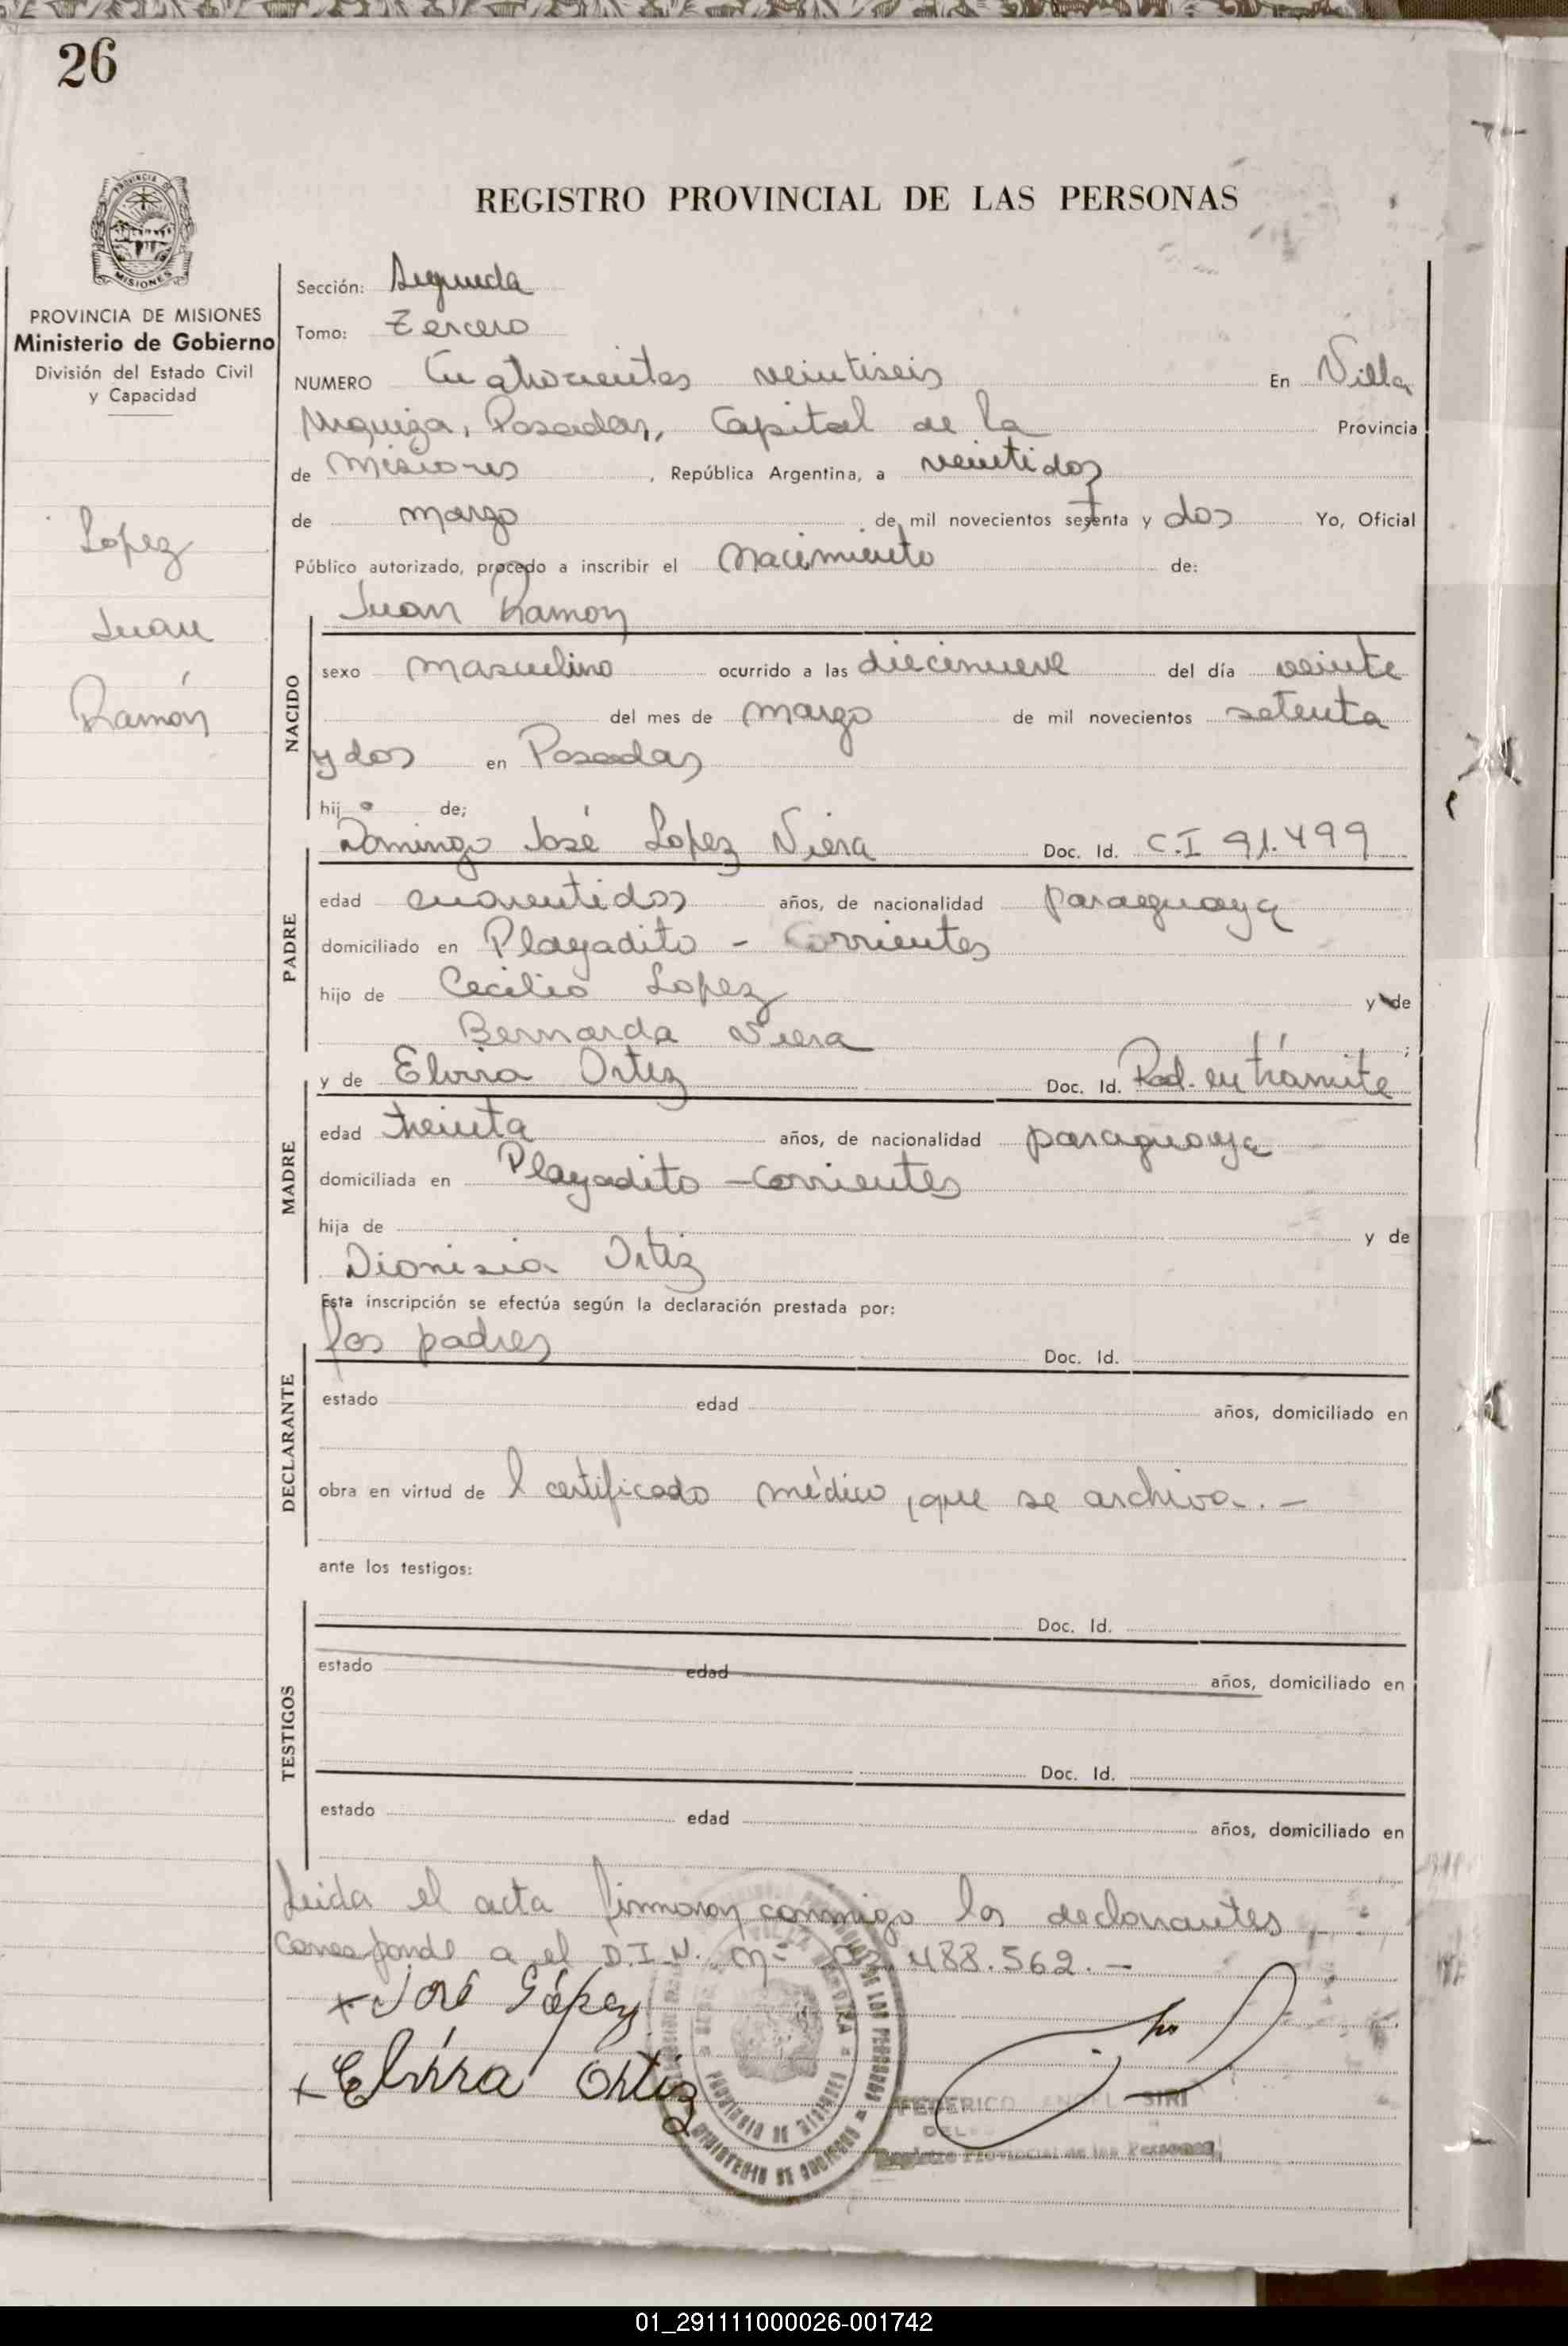 26
REGISTRO PROVINCIAL DE LAS PERSONAS
PROVINCIA DE
MISIONES
PROVINCIA DE MISIONES
Ministerio de Gobierno
División del Estado Civil
y Capacidad
Lopez
Juan
Ramón
Sección: Segunda
Tomo: Tercero
NUMERO Cuatrocientos veintiseis En Villa
Urquiza, Posadas, Capital de la Provincia
de Misiones, República Argentina, a veintidos
de marzo de mil novecientos setenta y dos Yo, Oficial
Público autorizado, procedo a inscribir el nacimiento de:
Juan Ramon
NACIDO
sexo masculino ocurrido a las diecinueve del día veinte
del mes de marzo de mil novecientos setenta
y dos en Posadas
hijo de;
Domingo José Lopez Viera Doc. Id. C.I 91.499
PADRE
edad cuarentidos años, de nacionalidad paraguaya
domiciliado en Playadito - Corrientes
hijo de Cecilio Lopez y de
Bernarda Viera ;
y de Elvira Ortiz Doc. Id. Rad. en trámite
MADRE
edad treinta años, de nacionalidad paraguaya
domiciliada en Playadito - Corrientes
hija de y de
Dionisia Ortiz
Esta inscripción se efectúa según la declaración prestada por:
los padres Doc. Id.
DECLARANTE
estado edad años, domiciliado en
obra en virtud de l certificado médico, que se archiva. -
ante los testigos:
Doc. Id.
TESTIGOS
estado edad años, domiciliado en
Doc. Id.
estado edad años, domiciliado en
Leida el acta firmaron conmigo los declarantes
Corresponde a el D.I.N. nº 488.562. -
x José López
x Elvira Ortiz
FEDERICO ANGEL SIRI
DEL
Registro Provincial de las Personas
PROVINCIA DE MISIONES
MINISTERIO DE GOBIERNO
01_291111000026-001742